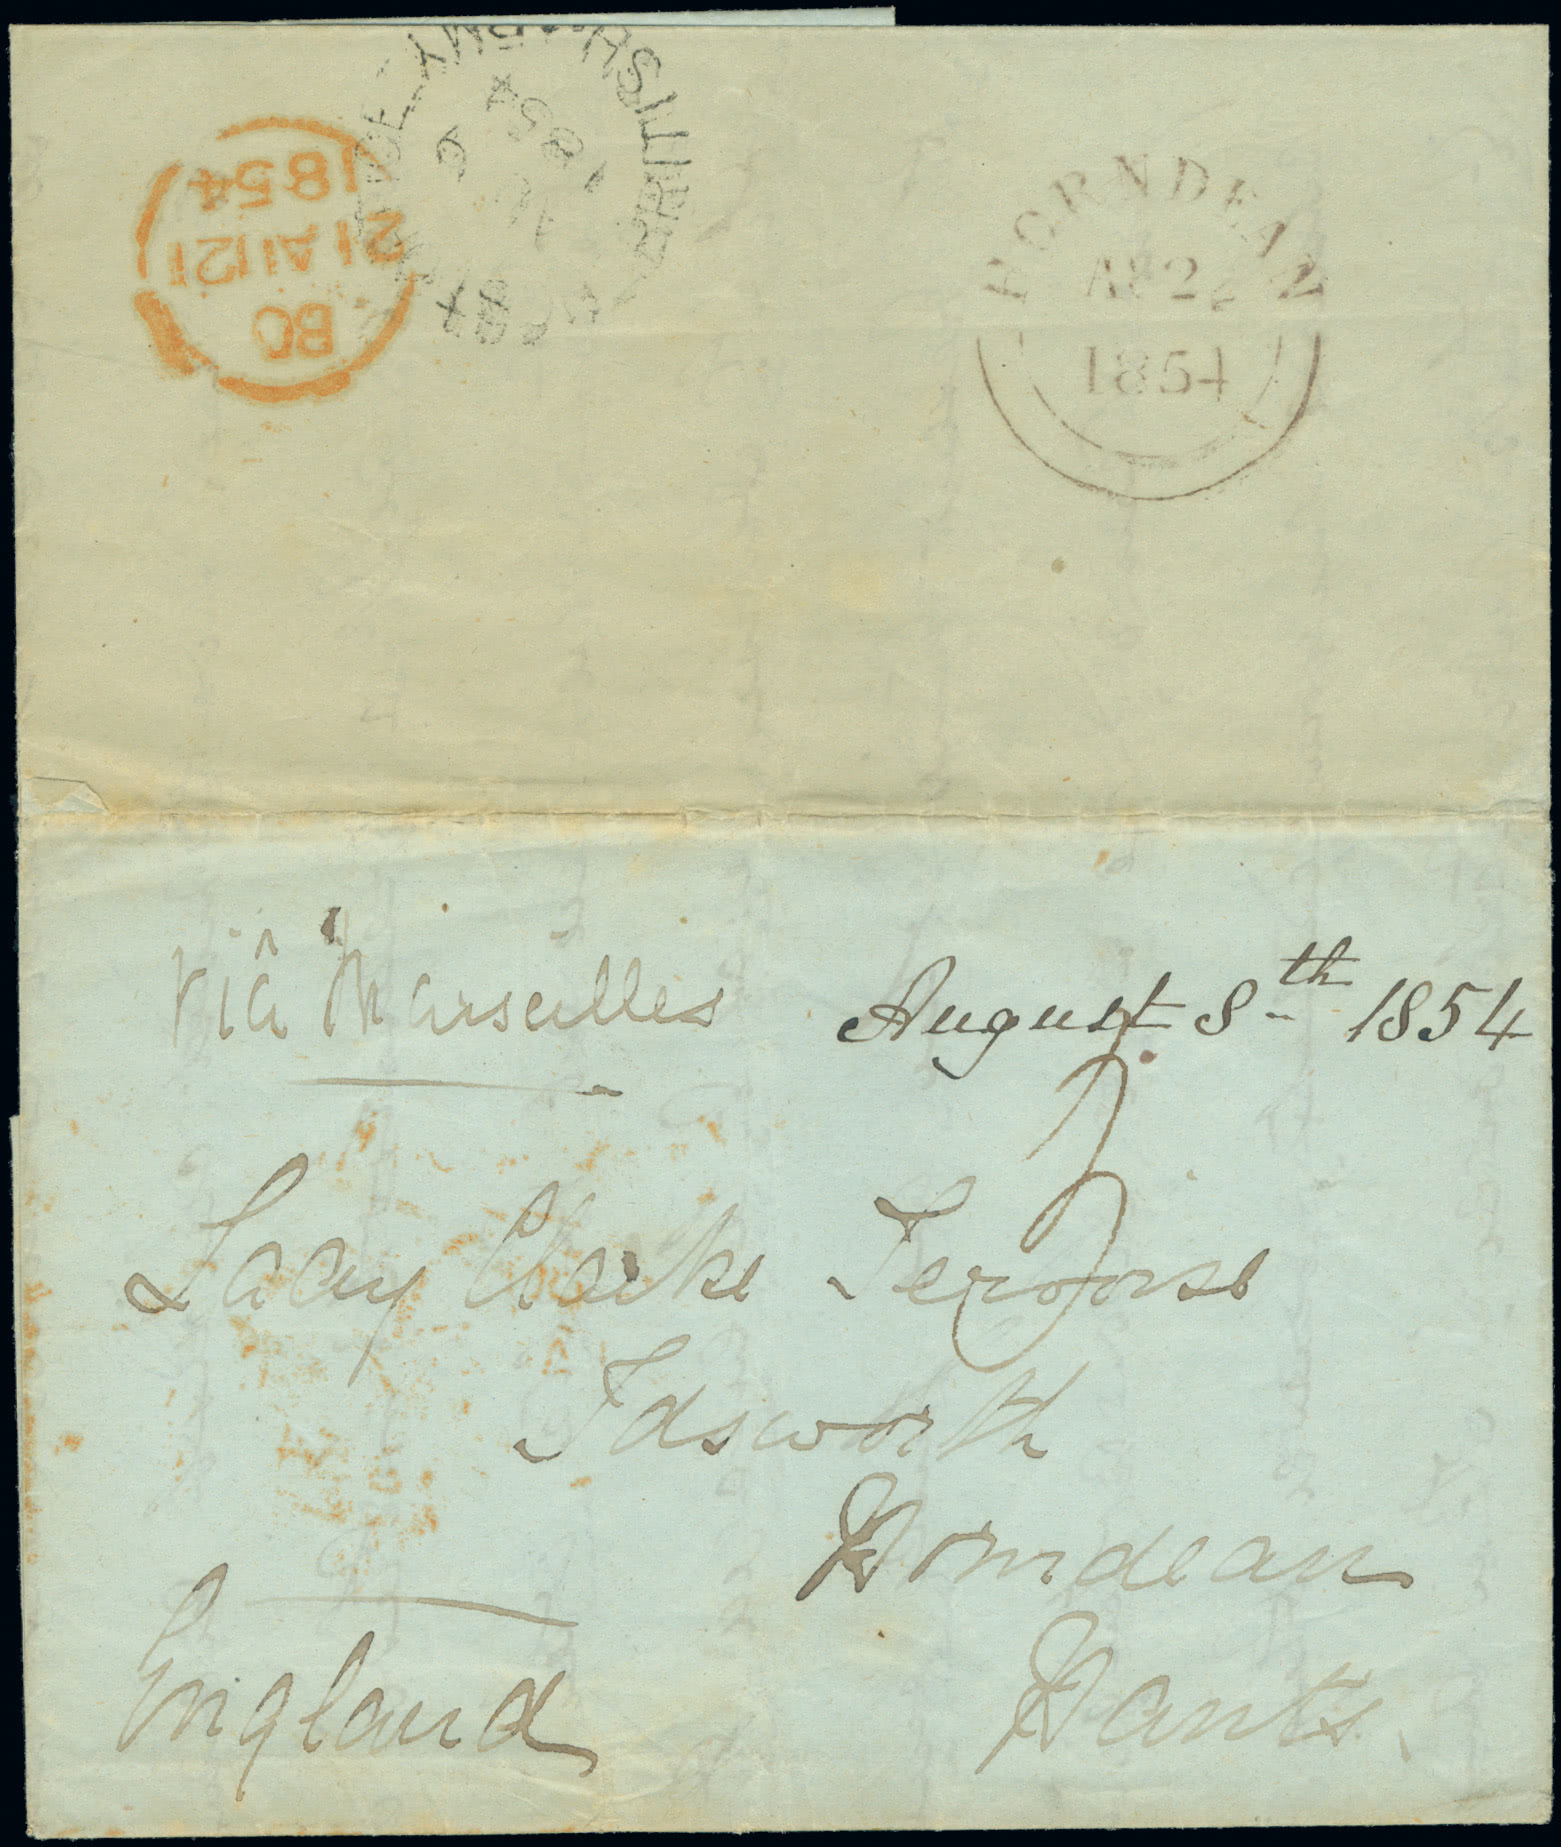 BRITISH ARMY
1854
BO
21 AU 21
1854
HORNDEAN
AU 22
1854
viâ Marseilles
August 8th 1854
Lady Clarke Jervoise
Idsworth
Horndean
Hants
England